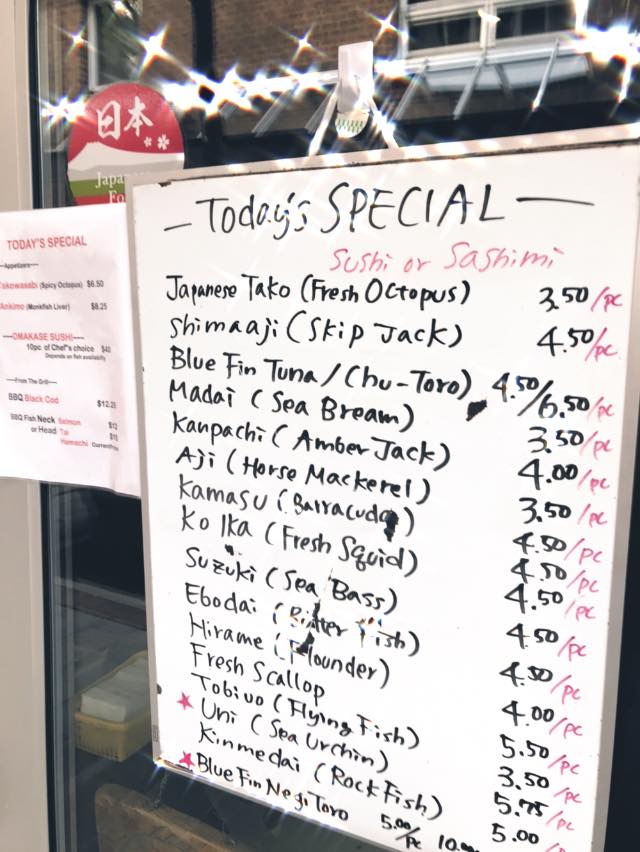 日本
Japanese
Fo
TODAY'S SPECIAL
---Appetizers---
Takowasabi (Spicy Octopus) $6.50
Ankimo (Monkfish Liver) $8.25
----OMAKASE SUSHI----
10pc of Chef's choice $40
Depends on fish availability
---From The Grill---
BBQ Black Cod $12.25
BBQ Fish Neck Salmon $12
or Head Tai $15
Hamachi
- Today's SPECIAL -
Sushi or Sashimi
Japanese Tako (Fresh Octopus) 3.50/pc
Shimaaji (Skip Jack) 4.50/pc
Blue Fin Tuna/(Chu-Toro) 4.50/6.50/pc
Madai (Sea Bream) 3.50/pc
Kanpachi (Amber Jack) 4.00/pc
Aji (Horse Mackerel) 3.50/pc
Kamasu (Barracuda) 4.50/pc
Ko Ika (Fresh Squid) 4.50/pc
Suzuki (Sea Bass) 4.50/pc
Ebodai (Butter Fish) 4.50/pc
Hirame (Flounder) 4.50/pc
Fresh Scallop 4.00/pc
Tobiuo (Flying Fish) 5.50/pc
★ Uni (Sea Urchin) 3.50/pc
Kinmedai (Rock Fish) 5.75/pc
★ Blue Fin Negi Toro 5.00/pc 10.00 5.00